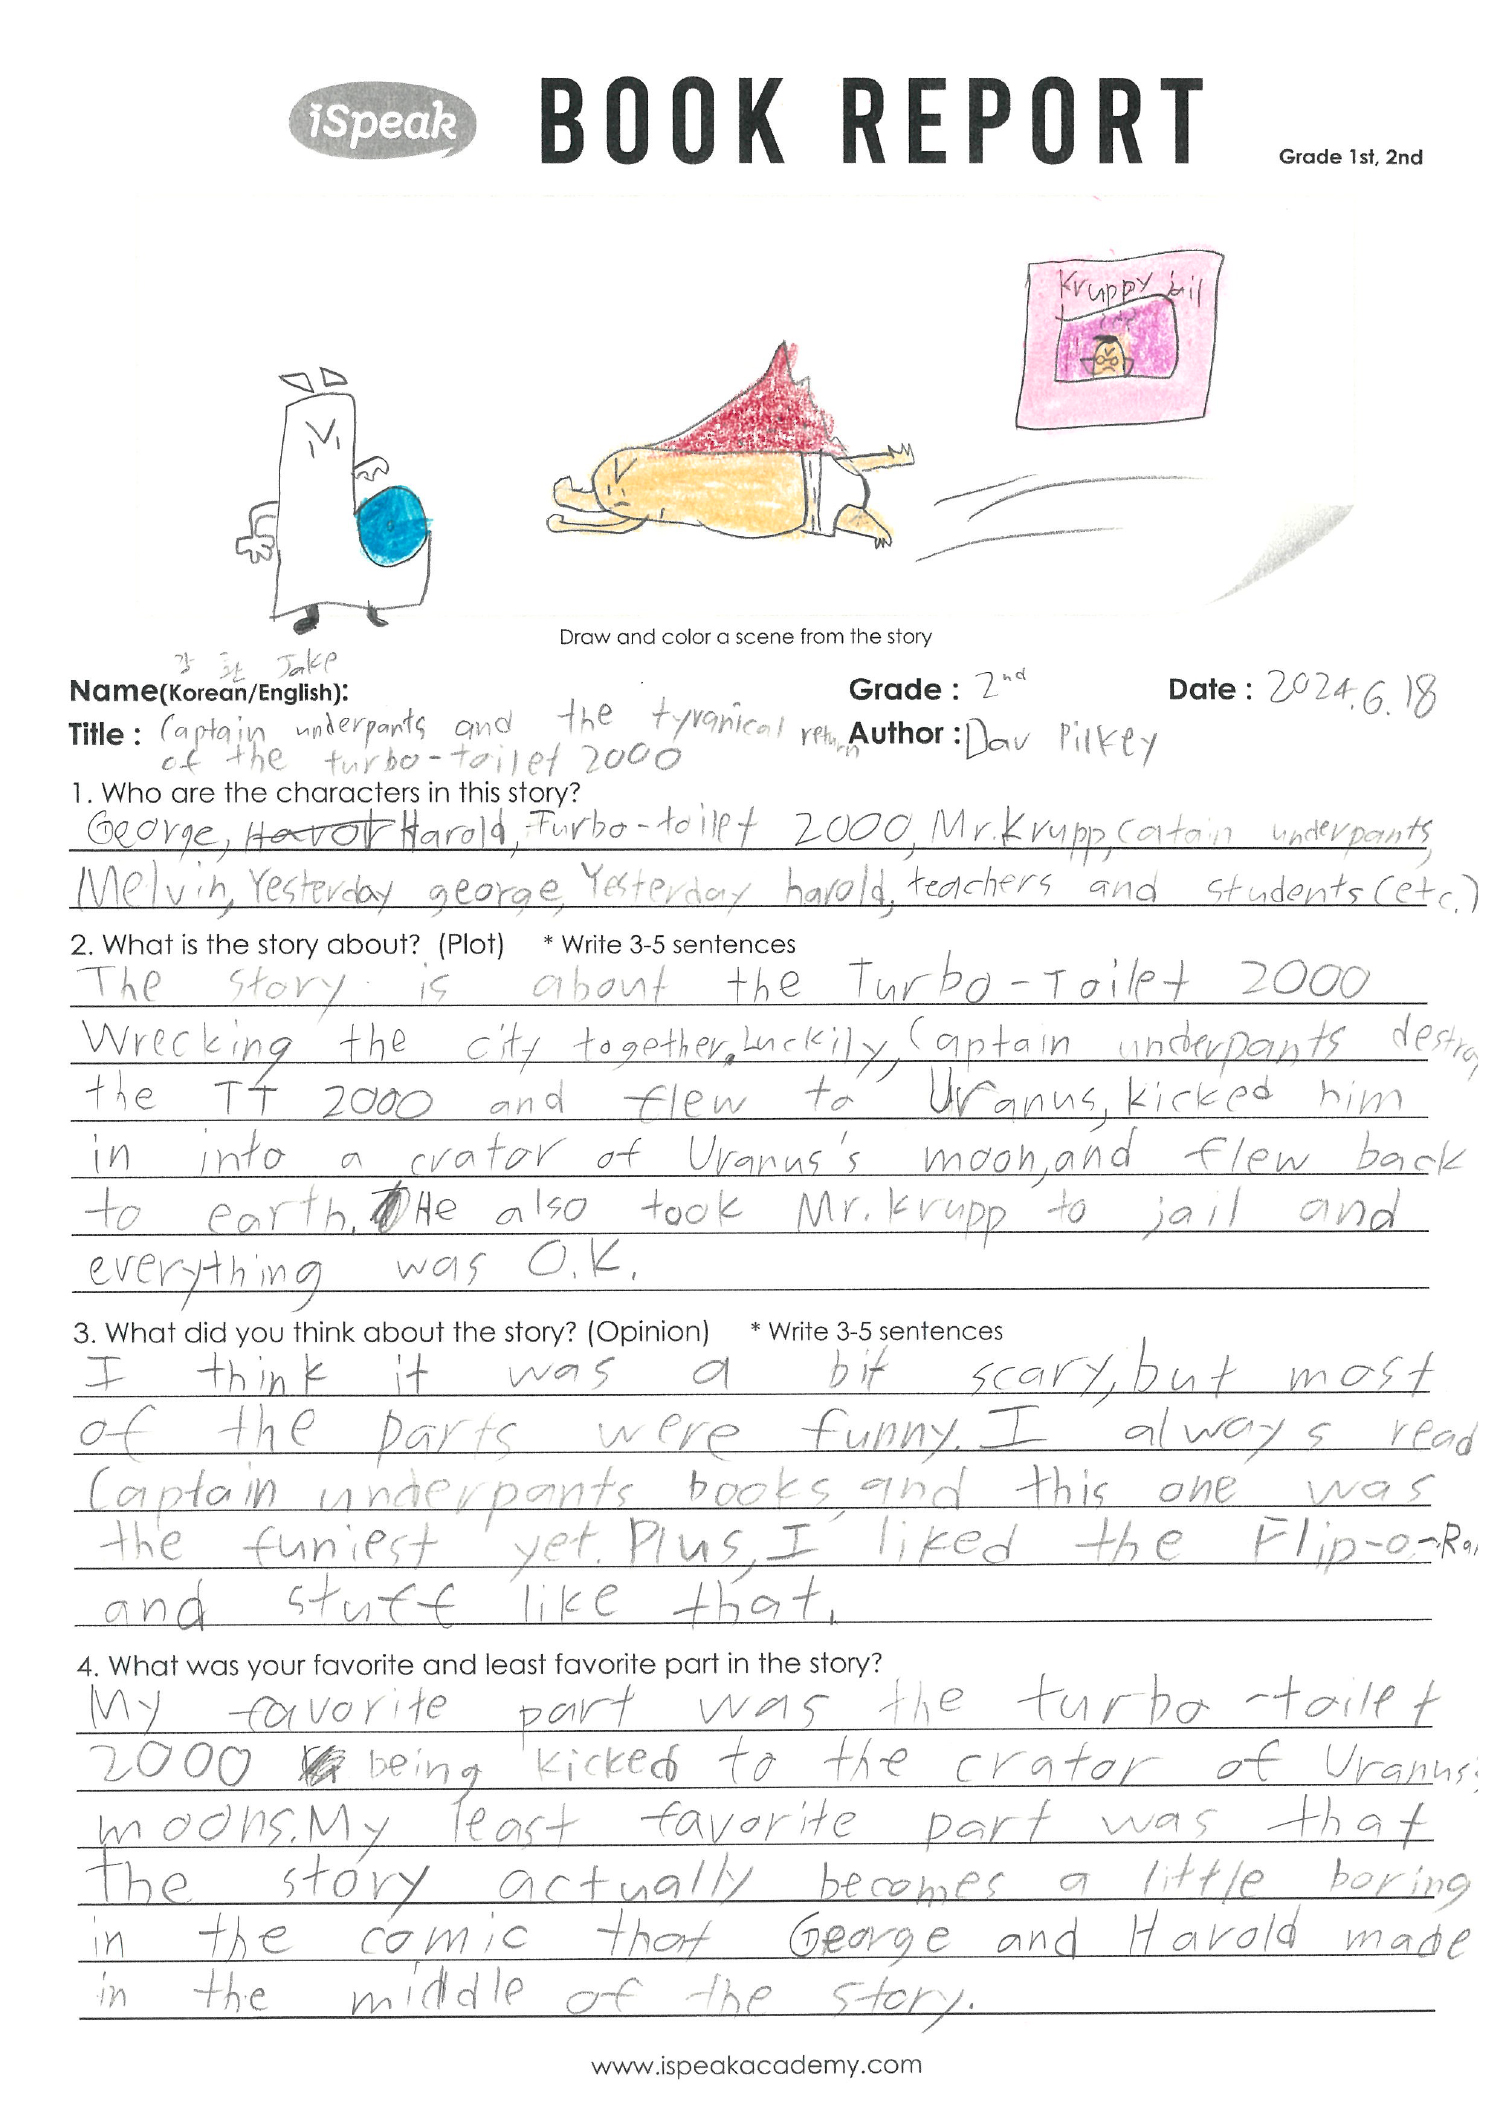 iSpeak BOOK REPORT
Grade 1st, 2nd
Kruppy jail
Draw and color a scene from the story
Jake
Name(Korean/English):
Grade : 2nd
Date : 2024.6.18
Title : Captain underpants and the tyranical return
of the turbo-toilet 2000
Author : Dav Pilkey
1. Who are the characters in this story?
George, Harold, Turbo-toilet 2000, Mr.Krupp, Catain underpants,
Melvin, Yesterday george, Yesterday harold, teachers and students (etc.)
2. What is the story about? (Plot) * Write 3-5 sentences
The story is about the Turbo-Toilet 2000
Wrecking the city together. Luckily, Captain underpants destroy
the TT 2000 and flew to Uranus, kicked him
in into a crator of Uranus's moon, and flew back
to earth. He also took Mr. Krupp to jail and
everything was O.K.
3. What did you think about the story? (Opinion) * Write 3-5 sentences
I think it was a bit scary, but most
of the parts were funny. I always read
Captain underpants books, and this one was
the funiest yet. Plus, I liked the Flip-o-Ra
and stuff like that.
4. What was your favorite and least favorite part in the story?
My favorite part was the turbo-toilet
2000 being kicked to the crator of Uranus's
moons. My least favorite part was that
the story actually becomes a little boring
in the comic that George and Harold made
in the middle of the story.
www.ispeakacademy.com